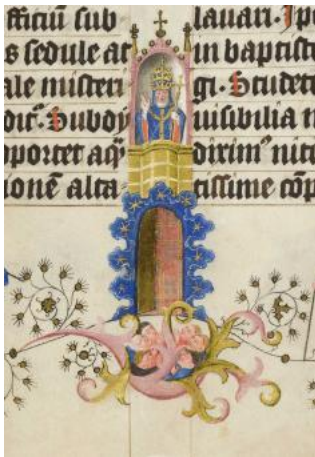 fficiū sub
s sedule ar
ale misteri
dic̄. Subdy
oportet aq̄
ionē alta
lauari. Ipo
in baptist
gi. Studeti
uisibilia n
dixim⁹ nic
tissime cōp